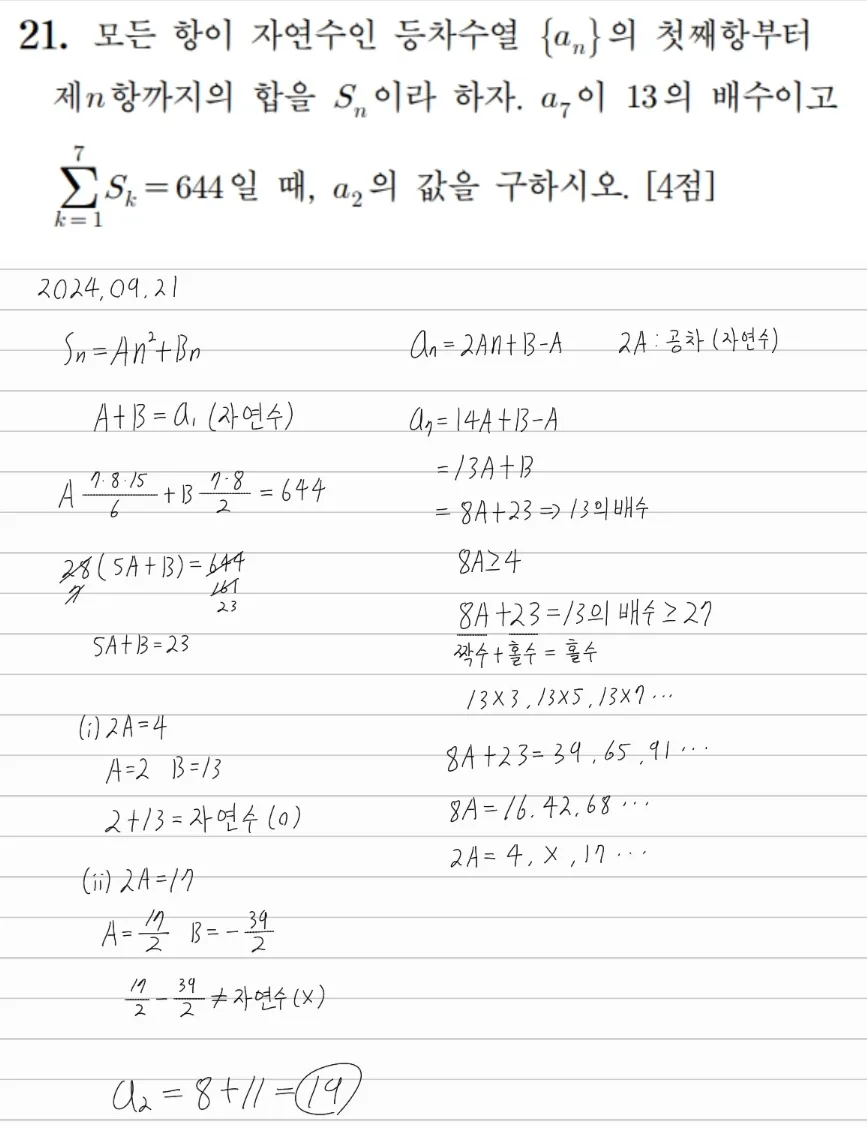 21. 모든 항이 자연수인 등차수열 {aₙ}의 첫째항부터
제n항까지의 합을 Sₙ이라 하자. a₇이 13의 배수이고
7
∑ Sₖ = 644일 때, a₂의 값을 구하시오. [4점]
k=1
2024.09.21
Sₙ = An² + Bn
A+B = a₁ (자연수)
A 7·8·15/6 + B 7·8/2 = 644
28(5A+B) = 644
7 161
23
5A+B = 23
(i) 2A=4
A=2 B=13
2+13 = 자연수 (o)
(ii) 2A=17
A = 17/2 B = -39/2
17/2 - 39/2 ≠ 자연수 (x)
a₂ = 8+11 = 19
aₙ = 2An+B-A 2A : 공차 (자연수)
a₇ = 14A+B-A
= 13A+B
= 8A+23 ⇒ 13의 배수
8A≥4
8A+23 = 13의 배수 ≥ 27
짝수 + 홀수 = 홀수
13×3, 13×5, 13×7 ···
8A+23 = 39, 65, 91 ···
8A = 16, 42, 68 ···
2A = 4, X, 17 ···